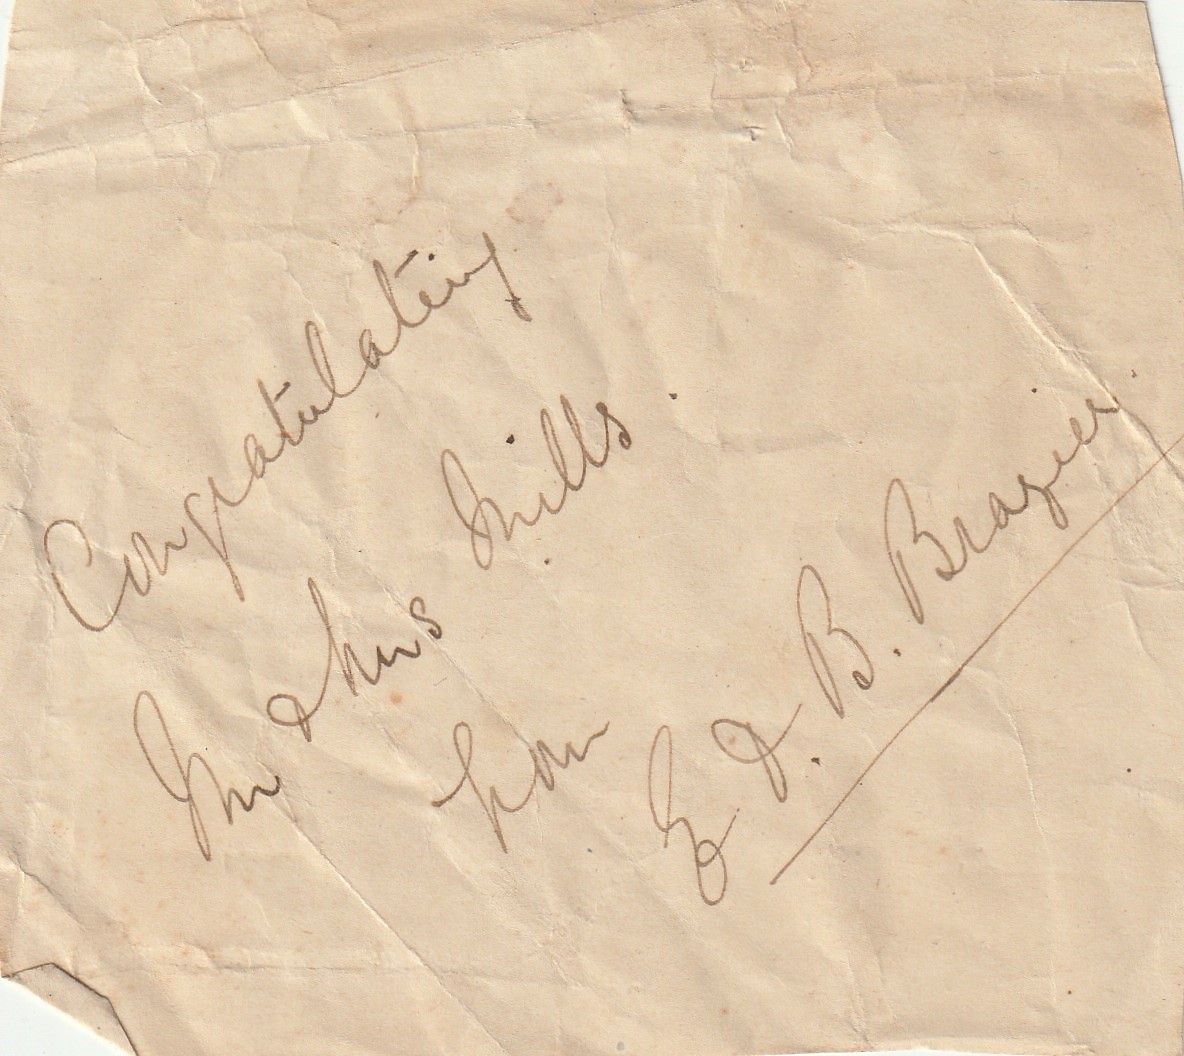 Congratulating
Mr & Mrs Mills.
from
E. D. B. Brazier.